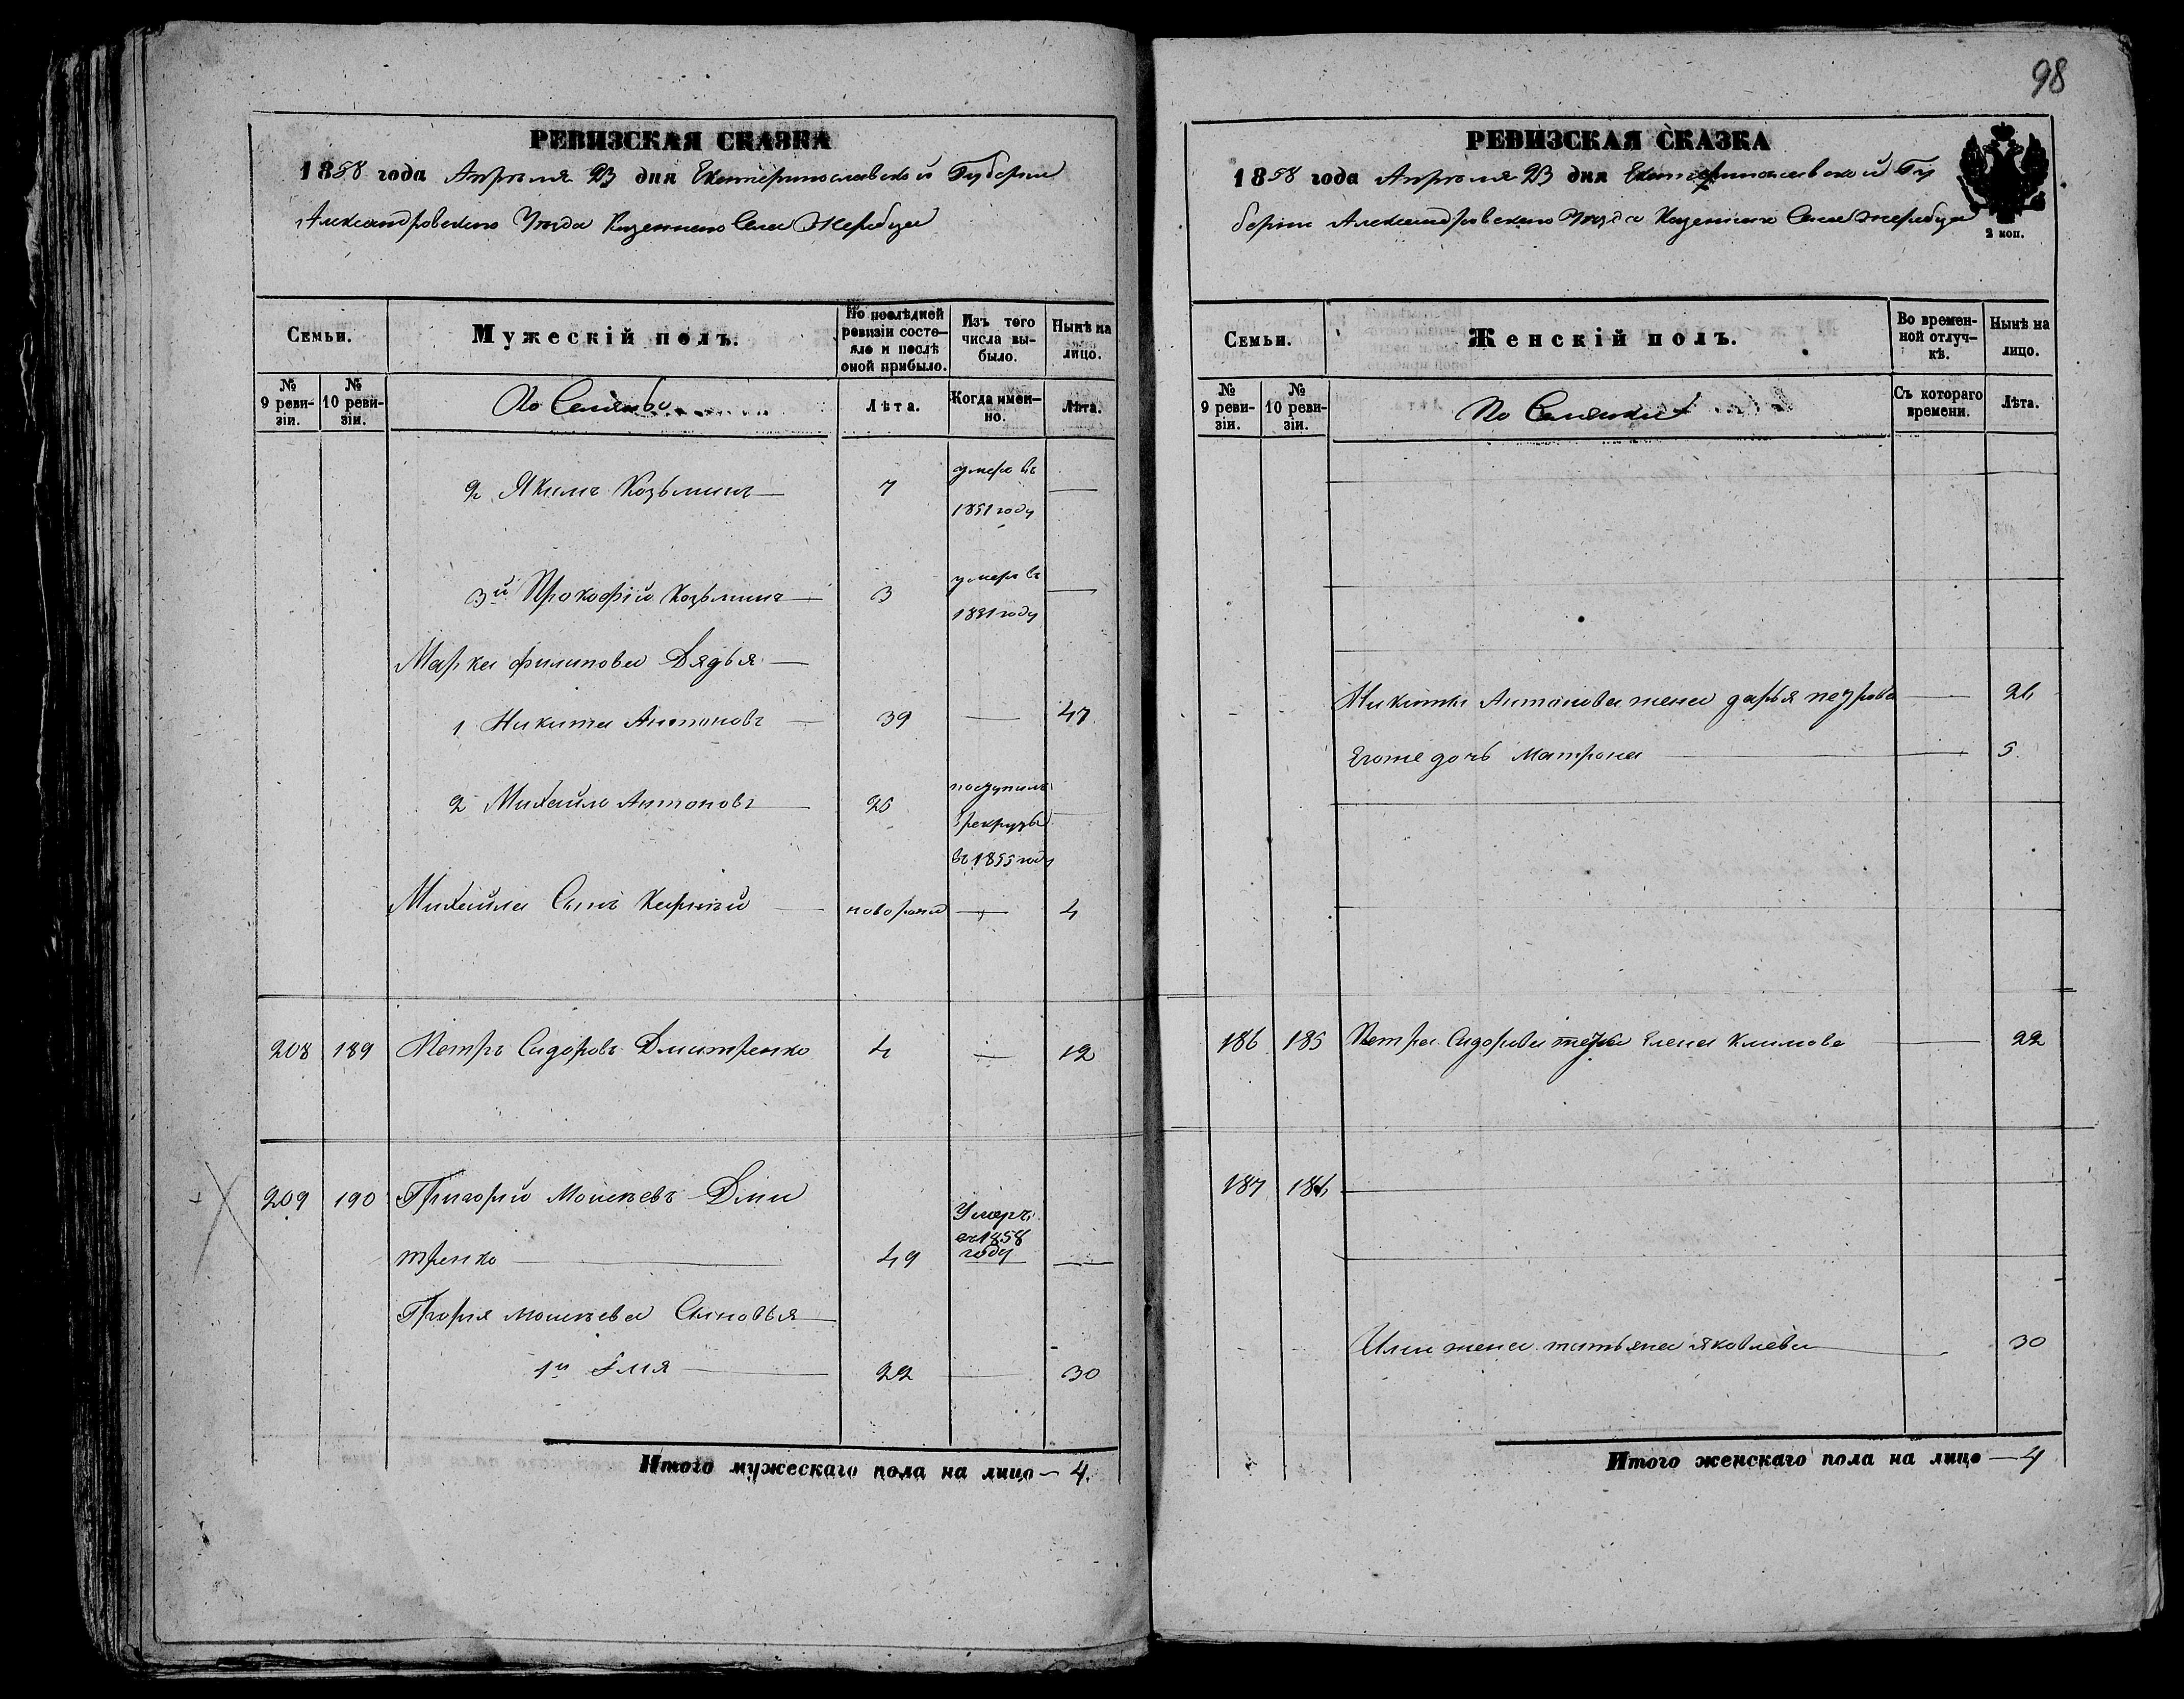 98
РЕВИЗСКАЯ СКАЗКА
1858 года Апреля 23 дня Екатеринославской Губернии
Александровского Уезда Казенного Села Жеребца
Семьи.
Мужескій полъ.
По послѣдней ревизіи состояло и послѣ оной прибыло.
Изъ того числа выбыло.
Нынѣ на лицо.
№ 9 ревизіи.
№ 10 ревизіи.
Лѣта.
Когда именно.
Лѣта.
2 Якимъ Козьминъ 7 умеръ въ
1851 году
3й Прокофій Козьминъ 3 умеръ въ
1851 году
Марка филипова Дядья
1 Никита Антоновъ 39 — 47
2 Михайло Антоновъ 25 поступилъ
въ 1855 году
Михайла Сынъ — 4
208 189 Петръ Сидоровъ Дмитренко 4 — 12
209 190 Григорій Моисеевъ Дми
тренко 49 Умеръ
въ 1858
году —
Моисеева Сыновья
1й Илія 22 — 30
Итого мужескаго пола на лицо — 4.
РЕВИЗСКАЯ СКАЗКА
1858 года Апреля 23 дня Екатеринославской Гу
бернии Александровского Уезда Казенного Села Жеребца
2 коп.
Семьи.
Женскій полъ.
Во временной отлучкѣ.
Нынѣ на лицо.
№ 9 ревизіи.
№ 10 ревизіи.
Съ котораго времени.
Лѣта.
Никиты Антонова жена дарья петрова — 26
Егоже дочь Матрона — 5
186 185 Петра Сидорова Елена Климова — 22
187 186
Ильи жена татьяна Яковлева — 30
Итого женскаго пола на лицо — 4